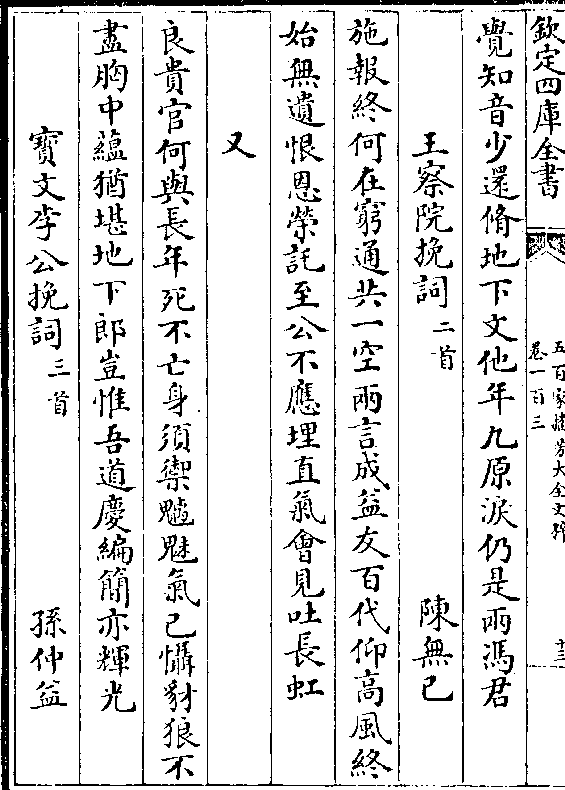 欽定四庫全書
五百家播芳大全文粹
卷一百三
十三
覺知音少還脩地下文他年九原淚仍是兩馮君
王察院挽詞二首 陳無已
施報終何在窮通共一空兩言成益友百代仰高風終
始無遺恨恩榮託至公不應埋直氣會見吐長虹
又
良貴官何與長年死不亡身須禦魑魅氣已懾豺狼不
盡胸中蘊猶堪地下郎豈惟吾道慶編簡亦輝光
寶文李公挽詞三首 孫仲益